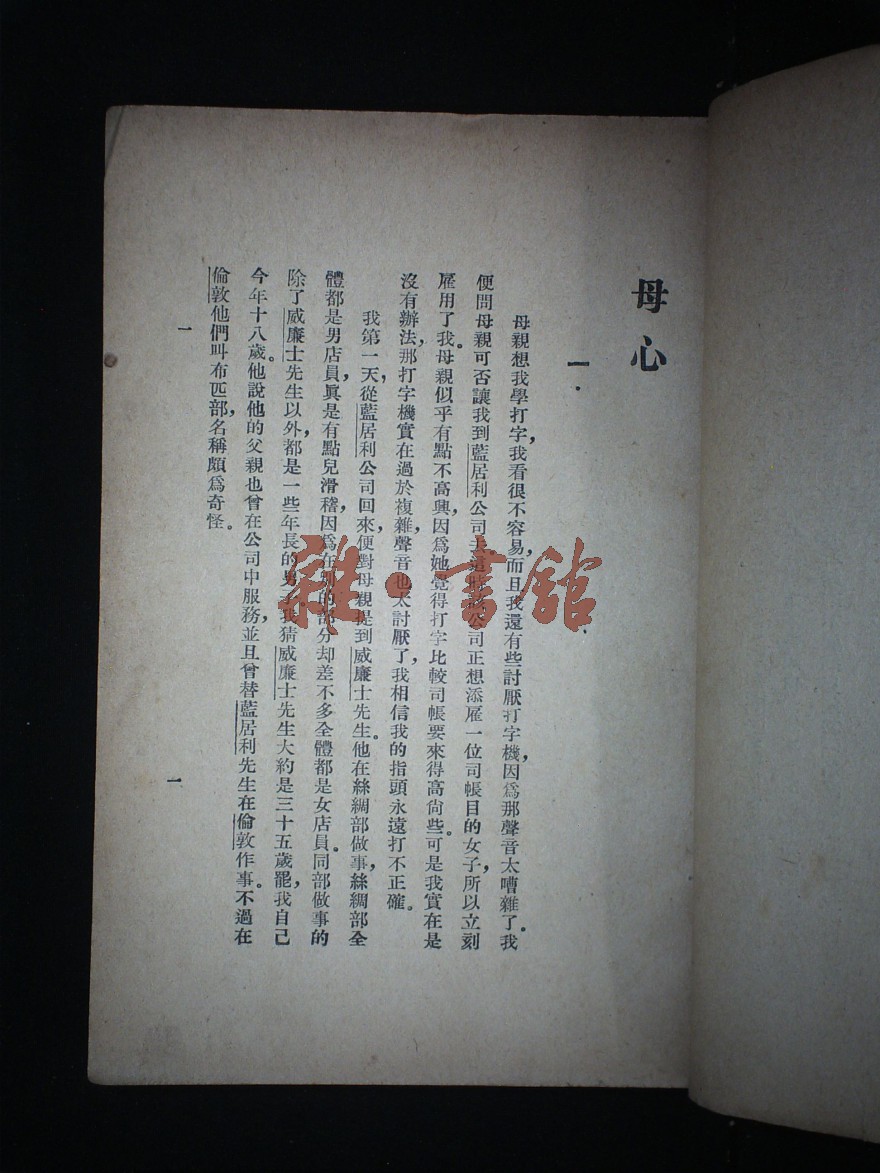 母心
一.
母親想我學打字，我看很不容易而且我還有些討厭打字機，因爲那聲音太嘈雜了。我
便問母親可否讓我到藍居利公司去這時該公司正想添雇一位司帳目的女子，所以立刻
雇用了我。母親似乎有點不高興，因爲她覺得打字比較司帳要來得高尙些。可是我實在是
沒有辦法，那打字機實在過於複雜，聲音也太討厭了，我相信我的指頭永遠打不正確。
我第一天從藍居利公司回來，便對母親提到威廉士先生。他在絲綢部做事，絲綢部全
體都是男店員，眞是有點兒滑稽，因爲在別的部分却差不多全體都是女店員。同部做事的
除了威廉士先生以外，都是一些年長的男子，我猜威廉士先生大約是三十五歲罷，我自己
今年十八歲。他說他的父親也曾在公司中服務，並且曾替藍居利先生在倫敦作事。不過在
倫敦他們叫布匹部，名稱頗爲奇怪。
一
一
雜·書館